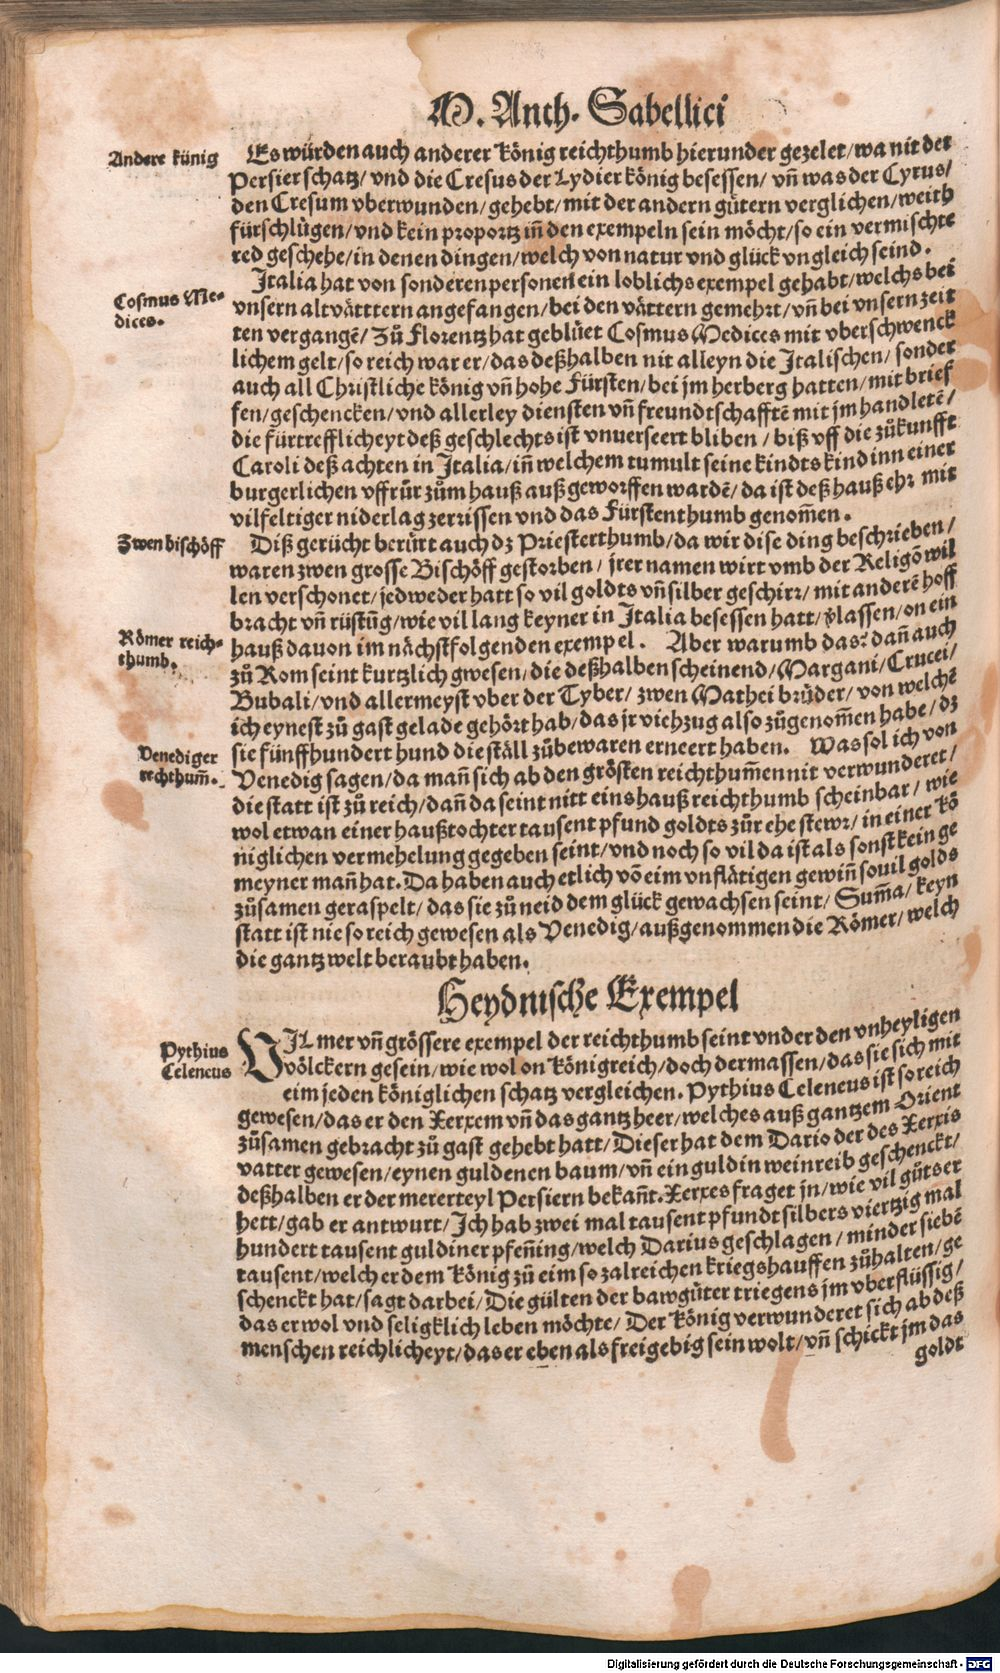 M. Anth. Sabellici
Andere künig
Es würden auch anderer König reichthumb hierunder gezelet/ wa nit der
Persier schatz/ vnd die Cresus der Lydier König besessen/ vn̄ was der Cyrus/
den Cresum vberwunden/ gehebt/ mit der andern gůtern verglichen/ weith
fürschlůgen/ vnd kein proportz in̄ den exempeln sein möcht/ so ein vermischte
red geschehe/ in denen dingen/ welch von natur vnd glück vngleich seind.
Cosmus Me-
dices.
Italia hat von sonderen personen ein loblichs exempel gehabt/ welchs bei
vnsern altvätttern angefangen/ bei den vättern gemehrt/ vn̄ bei vnsern zeit
ten vergangē/ Zů Florentz hat geblůet Cosmus Medices mit vberschwenck
lichem gelt/ so reich war er/ das deßhalben nit alleyn die Italischen/ sonder
auch all Christliche König vn̄ hohe Fürsten/ bei jm herberg hatten/ mit brief
fen/ geschencken/ vnd allerley diensten vn̄ freundtschafftē mit jm handletē/
die fürtrefflicheyt deß geschlechts ist vnuerseert bliben/ biß vff die zůkunfft
Caroli deß achten in Italia/ in̄ welchem tumult seine kindts kind inn einer
burgerlichen vffrůr zům hauß auß geworffen wardē/ da ist deß hauß ehr mit
vilfeltiger niderlag zerrissen vnd das Fürstenthumb genom̄en.
Zwen bischöff
Diß gerücht berůrt auch dz Priesterthumb/ da wir dise ding beschrieben/
waren zwen grosse Bischöff gestorben/ jrer namen wirt vmb der Religiō wil
len verschonet/ jedweder hatt so vil goldts vn̄ silber geschirr/ mit anderē hoff
bracht vn̄ rüstūg/ wie vil lang keyner in Italia besessen hatt/ v̄lassen/ on ein
Römer reich-
thumb.
hauß dauon im nächstfolgenden exempel. Aber warumb das? dan̄ auch
zů Rom seint kurtzlich gwesen/ die deßhalben scheinend/ Margani/ Crucei/
Bubali/ vnd allermeyst vber der Tyber/ zwen Mathei brůder/ von welchē
ich eynest zů gast gelade gehört hab/ das jr viehzug also zůgenom̄en habe/ dz
sie fünffhundert hund die ställ zůbewaren erneert haben. Was sol ich von
Venediger
rechthum̄.
Venedig sagen/ da man̄ sich ab den grösten reichthum̄en nit verwunderet/
die statt ist zů reich/ dan̄ da seint nitt eins hauß reichthumb scheinbar/ wie
wol etwan einer haußtochter tausent pfund goldts zůr ehe stewr/ in einer kö
niglichen vermehelung gegeben seint/ vnd noch so vil da ist als sonst kein ge
meyner man̄ hat. Da haben auch etlich vō eim vnflätigen gewin̄ souil golds
zůsamen geraspelt/ das sie zů neid dem glück gewachsen seint/ Sum̄a/ keyn
statt ist nie so reich gewesen als Venedig/ außgenommen die Römer/ welch
die gantz welt beraubt haben.
Heydnische Exempel
Pythius
Celeneus
VIL mer vn̄ grössere exempel der reichthumb seint vnder den vnheyligen
völckern gesein/ wie wol on Königreich/ doch dermassen/ das sie sich mit
eim jeden königlichen schatz vergleichen. Pythius Celeneus ist so reich
gewesen/ das er den Xerxem vn̄ das gantz heer/ welches auß gantzem Orient
zůsamen gebracht zů gast gehebt hatt/ Dieser hat dem Dario der des Xerxis
vatter gewesen/ eynen guldenen baum/ vn̄ ein guldin weinreib geschenckt/
deßhalben er der mererteyl Persiern bekan̄t. Xerxes fraget jn/ wie vil gůts er
hett/ gab er antwurt/ Ich hab zwei mal tausent pfundt silbers viertzig mal
hundert tausent guldiner pfen̄ing/ welch Darius geschlagen/ minder siebē
tausent/ welch er dem König zů eim so zalreichen kriegshauffen zůhalten/ ge
schenckt hat/ sagt darbei/ Die gülten der bawgůter triegens jm vberflüssig/
das er wol vnd seligklich leben möchte/ Der König verwunderet sich ab deß
menschen reichlicheyt/ das er eben als freigebig sein wolt/ vn̄ schickt jm das
goldt
Digitalisierung gefördert durch die Deutsche Forschungsgemeinschaft - DFG